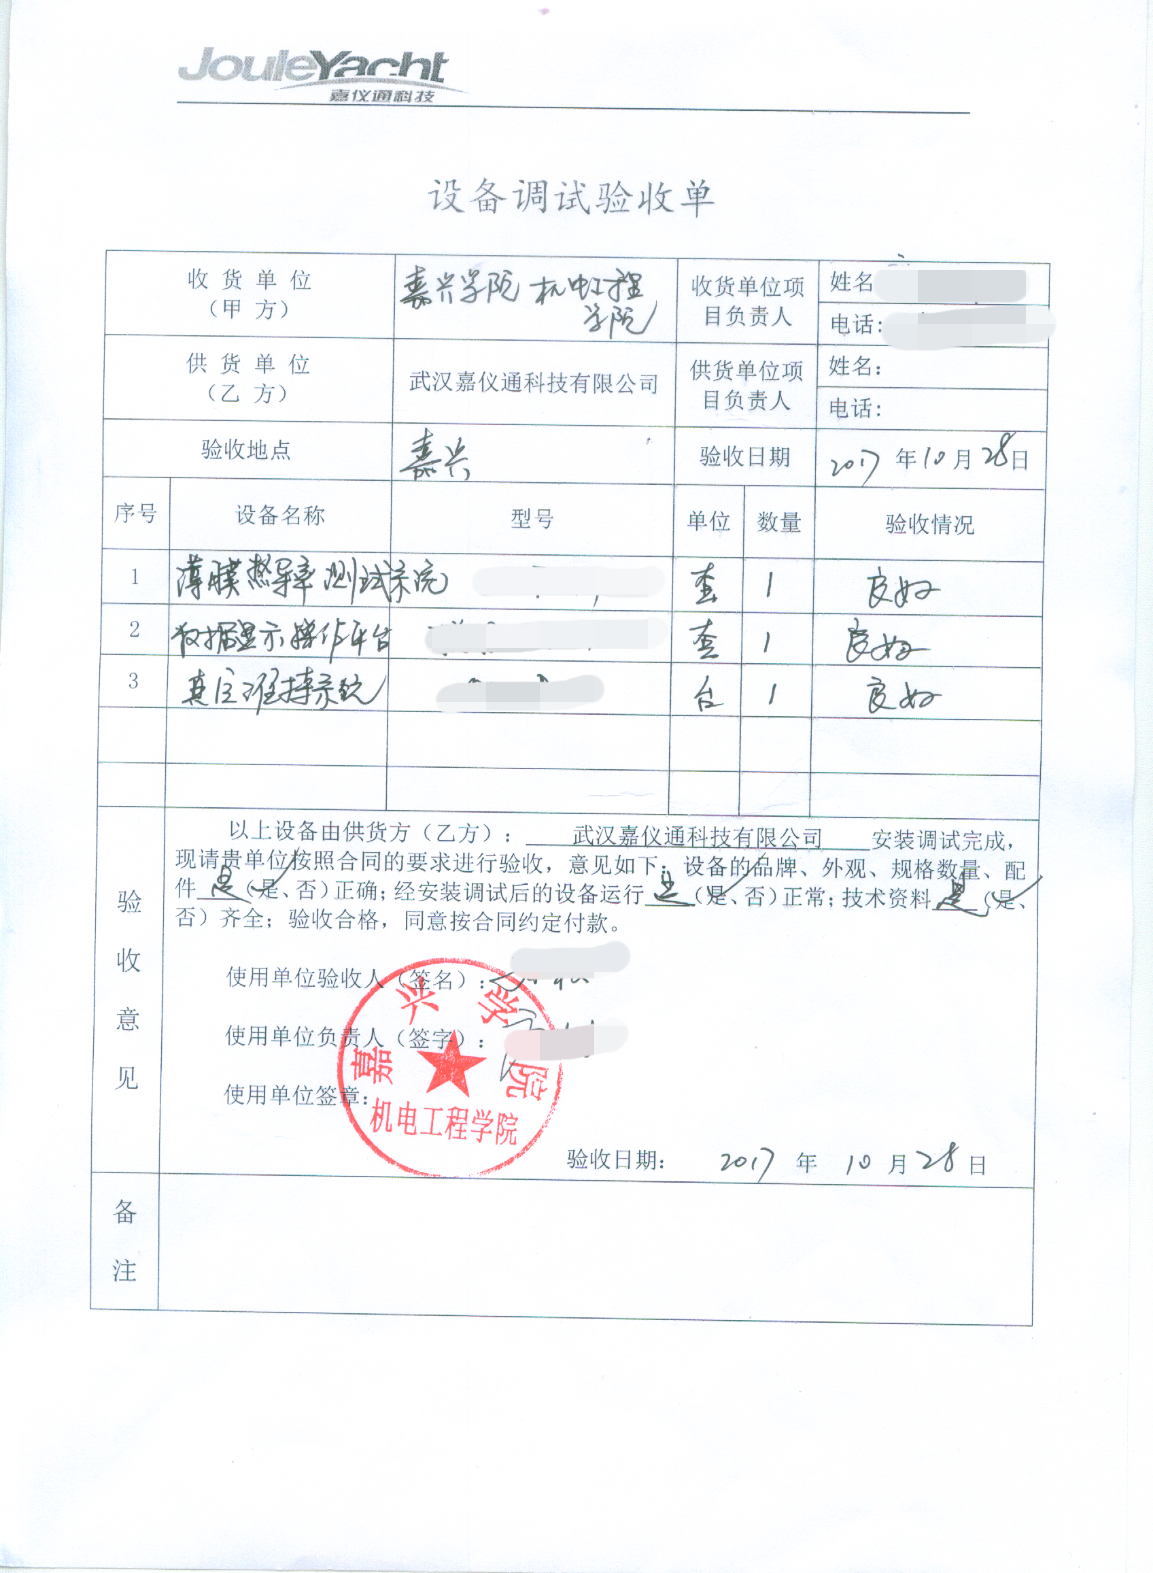 JouleYacht
嘉仪通科技
设备调试验收单
收货单位
（甲方）
嘉兴学院 机电工程
学院
收货单位项
目负责人
姓名
电话:
供货单位
（乙方）
武汉嘉仪通科技有限公司
供货单位项
目负责人
姓名：
电话:
验收地点
嘉兴
验收日期
2017 年 10 月 28 日
序号 设备名称 型号 单位 数量 验收情况
1 薄膜热导率测试系统 套 1 良好
2 数据显示操作平台 套 1 良好
3 真空维持系统 台 1 良好
验收意见
以上设备由供货方（乙方）： 武汉嘉仪通科技有限公司 安装调试完成，
现请贵单位按照合同的要求进行验收，意见如下：设备的品牌、外观、规格数量、配
件 是 （是、否）正确；经安装调试后的设备运行 是 （是、否）正常；技术资料 是 （是、
否）齐全；验收合格，同意按合同约定付款。
使用单位验收人（签名）：
使用单位负责人（签字）：
使用单位签章：
嘉兴学院
机电工程学院
验收日期： 2017 年 10 月 28 日
备注